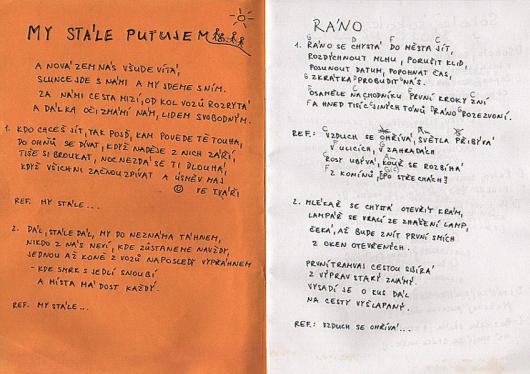 MY STÁLE PUTUJEM
A NOVÁ ZEM NÁS VŠUDE VÍTÁ,
SLUNCE JDE S NÁMI A MY JDEME S NÍM.
ZA NÁMI CESTA MIZÍ, OD KOL VOZŮ ROZRYTÁ
A DÁLKA OČI ZMÁMÍ NÁM, LIDEM SVOBODNÝM.
1. KDO CHCEŠ JÍT, TAK POJĎ, KAM POVEDE TĚ TOUHA,
DO OHŇŮ SE DÍVAT, KDYŽ NADĚJE Z NICH ZÁŘÍ,
TIŠE SI BROUKAT, NOC NEZDÁ SE TI DLOUHÁ,
KDYŽ VŠICHNI ZAČNOU ZPÍVAT A ÚSMĚV MAJ
VE TVÁŘI
REF. MY STÁLE...
2. DÁL, STÁLE DÁL, MY DO NEZNÁMA TÁHNEM,
NIKDO Z NÁS NEVÍ, KDE ZŮSTANEME NAVŽDY,
JEDNOU AŽ KONĚ Z VOZŮ NAPOSLEDY VYPŘÁHNEM
- KDE SMRK S JEDLÍ SNOUBÍ
A MÍSTA MÁ DOST KAŽDÝ.
REF. MY STÁLE...
RÁNO
G D F C
1. RÁNO SE CHYSTÁ DO MĚSTA JÍT,
ROZDÝCHNOUT MLHU, PORUŠIT KLID,
POSUNOUT DATUM, POPOHNAT ČAS,
ZKRÁTKA PROBUDIT NÁS.
OSAMĚLE NA CHODNÍKU PRVNÍ KROKY ZNÍ
A HNED TISÍC JINÝCH TÓNŮ RÁNO ROZEZVONÍ.
REF.: VZDUCH SE OHŘÍVÁ, SVĚTLA PŘIBÝVÁ
V ULICÍCH, V ZAHRADÁCH
ROSY UBÝVÁ, KOUŘ SE ROZBÍHÁ
Z KOMÍNŮ PO STŘECHÁCH.
2. MLÉKAŘ SE CHYSTÁ OTEVŘÍT KRÁM,
LAMPÁŘ SE VRACÍ ZE ZHÁŠENÍ LAMP,
ČEKÁ, AŽ BUDE ZNÍT PRVNÍ SMÍCH
Z OKEN OTEVŘENÝCH.
PRVNÍ TRAMVAJ CESTOU SBÍRÁ
Z VÝPRAV STAKÝ ZNÁMÝ.
VYSADÍ JE O KUS DÁL
NA CESTY VYŠLAPANÝ.
REF.: VZDUCH SE OHŘÍVÁ...